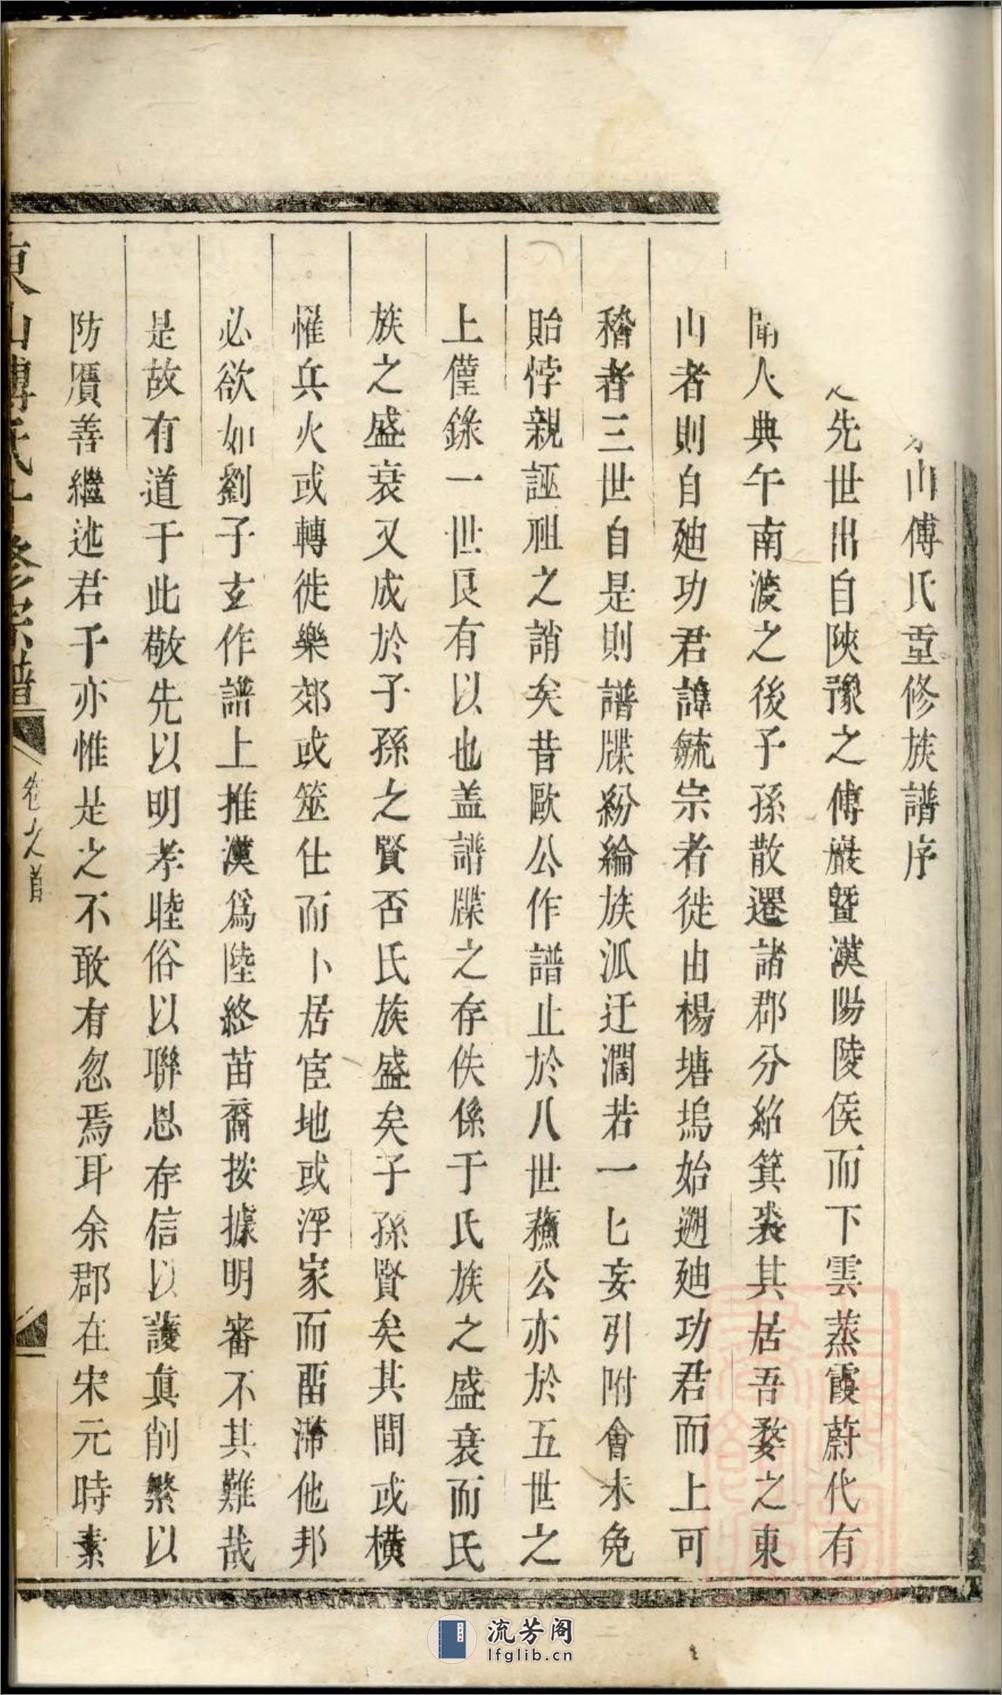 山傅氏重修族譜序
先世出自陝豫之傅巖暨漢陽陵侯而下雲蒸霞蔚代有
聞人典午南渡之後子孫散還諸郡分紹箕裘其居吾婺之東
山者則自廸功君諱毓宗者徙由楊塘塢始遡廸功君而上可
稽者三世自是則譜牒紛綸族派迂濶若一匕妄引附會未免
貽悖親誣祖之誚矣昔歐公作譜止於八世蘓公亦於五世之
上僅錄一世良有以也盖譜牒之存佚係于氏族之盛衰而氏
族之盛衰又成於子孫之賢否氏族盛矣子孫賢矣其間或橫
罹兵火或轉徙樂郊或筮仕而卜居宦地或浮家而畱滯他邦
必欲如劉子玄作譜上推漢爲陸終苗裔按據明審不其難哉
是故有道于此敬先以明孝睦俗以聯恩存信以護真削繁以
防贋善繼述君子亦惟是之不敢有忽焉耳余郡在宋元時素
東山傅氏十修宗譜
卷之首
流芳阁
lfglib.cn